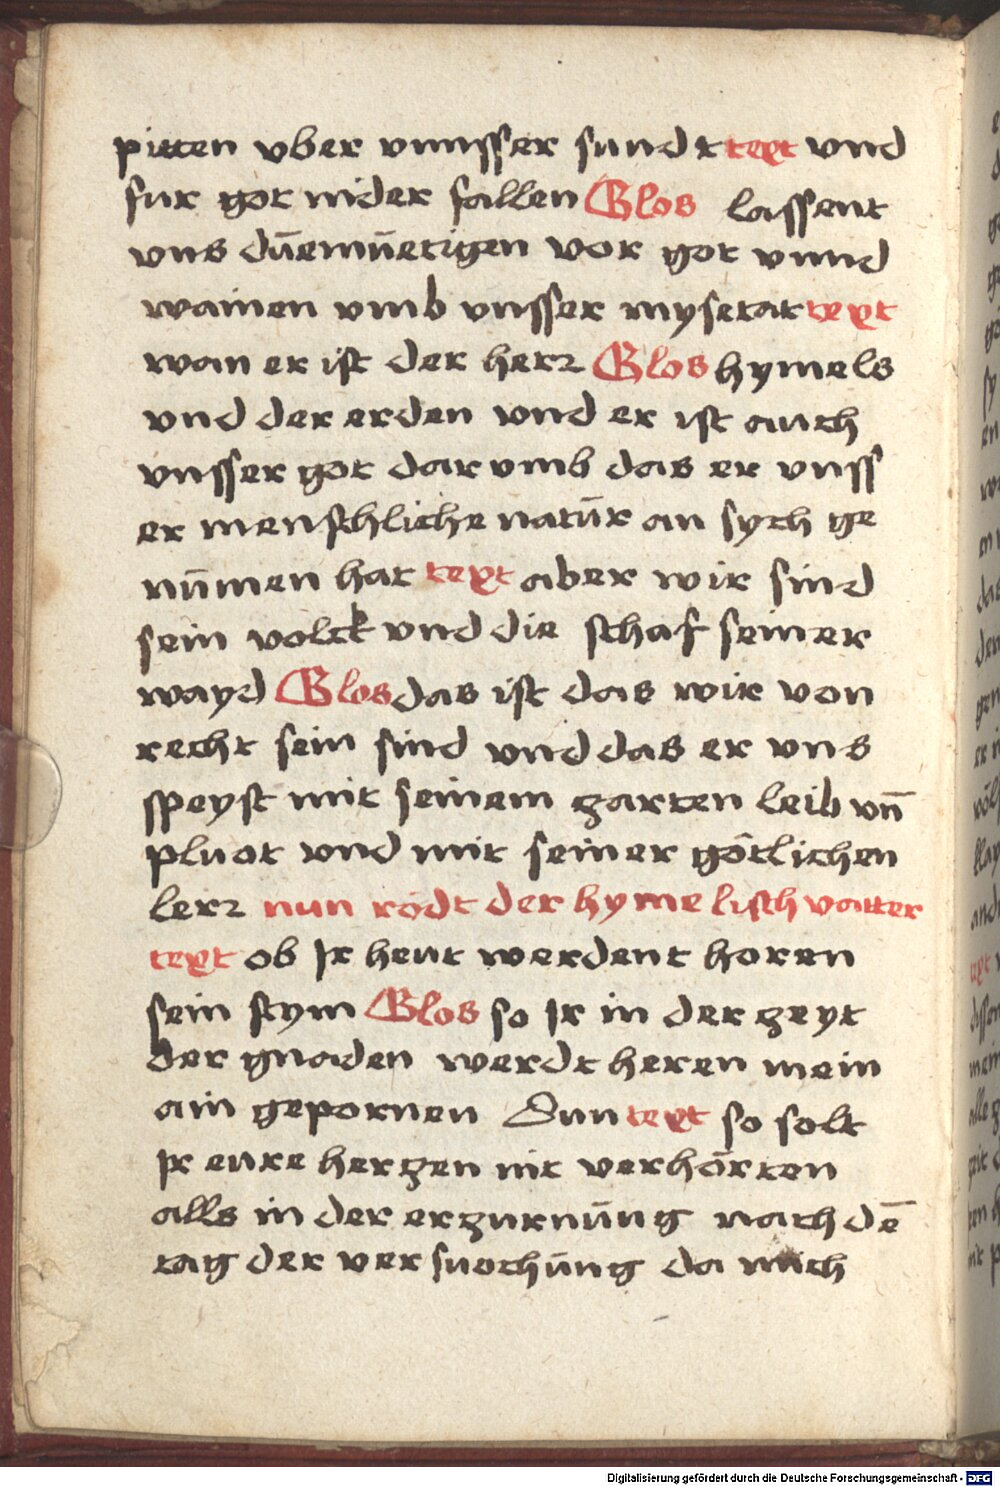 pitten vber vnnsser sundt text vnd
fur got nider fallen Glos lassent
vns dūemūetigen vor got vnnd
wainen vmb vnsser mysetat text
wan er ist der herr Glos hymels
vnd der erden vnd er ist auch
vnsser got dar vmb das er vnss
er menschliche natūr an sych ge
nūmen hat text aber wir sind
sein volck vnd die schaf seiner
wayd Glos das ist das wir von
recht sein sind vnd das er vns
speyst mit seinem zarten leib vn̄
pluot vnd mit seiner götlichen
lerr nun rödt der hymelisch vatter
text ob Ir heut werdent horen
sein stym Glos so Ir in der zeyt
der gnaden werdt heren mein
ain gepornen Sun text so solt
Ir eure herzen nit verhörten
alls in der erzurnūng nach dē
tag der versuochūng da mich
Digitalisierung gefördert durch die Deutsche Forschungsgemeinschaft - DFG